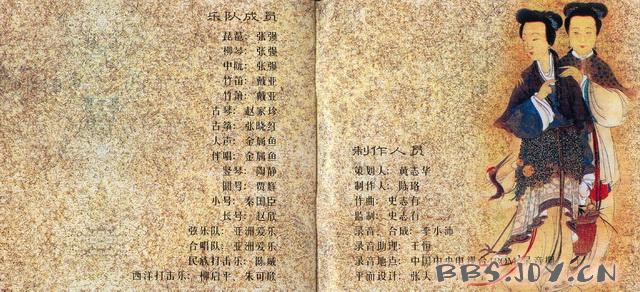 乐队成员
琵琶：张强
柳琴：张强
中阮：张强
竹笛：戴亚
竹箫：戴亚
古琴：赵家珍
古筝：张晓红
人声：金属鱼
伴唱：金属鱼
竖琴：陶静
圆号：贾辉
小号：秦国臣
长号：赵欣
弦乐队：亚洲爱乐
合唱队：亚洲爱乐
民族打击乐：陈威
西洋打击乐：柳启平、朱可欣
制作人员
策划人：黄志华
制作人：陈珞
作曲：史志有
监制：史志有
录音、合成：李小沛
录音助理：王恒
录音地点：中国中央电视台
平面设计：张天
BBS.JOY.CN